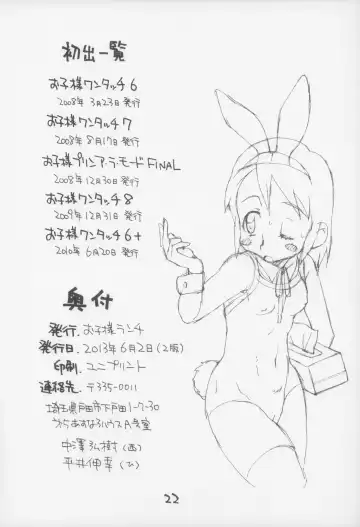 初出一覧
お子様ワンタッチ6
2008年 3月23日 発行
お子様ワンタッチ7
2008年 8月17日 発行
お子様プリンア・ラ・モードFINAL
2008年12月30日 発行
お子様ワンタッチ8
2009年12月31日 発行
お子様ワンタッチ6+
2010年 6月20日 発行
奥付
発行. お子様ランチ
発行日. 2013年6月2日(2版)
印刷. ユニプリント
連絡先. 〒335-0011
埼玉県戸田市下戸田1-7-30
中澤弘樹(西)
平井伸幸(ひ)
22